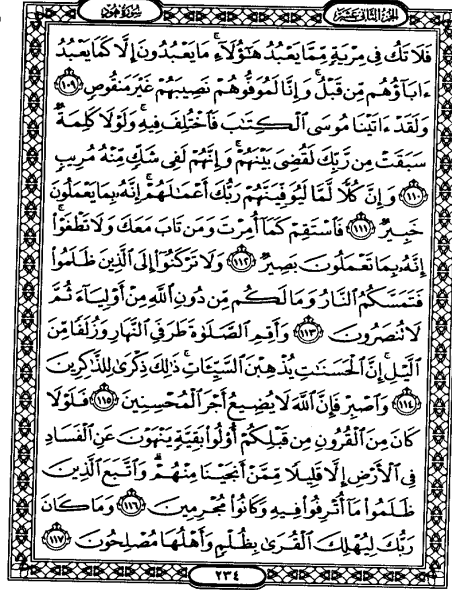 سورة هود
الجزء الثاني عشر
فَلَا تَكُ فِي مِرْيَةٍ مِّمَّا يَعْبُدُ هَٰٓؤُلَآءِ ۚ مَا يَعْبُدُونَ إِلَّا كَمَا يَعْبُدُ
ءَابَآؤُهُم مِّن قَبْلُ ۚ وَإِنَّا لَمُوَفُّوهُمْ نَصِيبَهُمْ غَيْرَ مَنقُوصٍ ﴿١٠٩﴾
وَلَقَدْ ءَاتَيْنَا مُوسَى ٱلْكِتَٰبَ فَٱخْتُلِفَ فِيهِ ۚ وَلَوْلَا كَلِمَةٌ
سَبَقَتْ مِن رَّبِّكَ لَقُضِيَ بَيْنَهُمْ ۚ وَإِنَّهُمْ لَفِي شَكٍّ مِّنْهُ مُرِيبٍ
﴿١١٠﴾ وَإِنَّ كُلًّا لَّمَّا لَيُوَفِّيَنَّهُمْ رَبُّكَ أَعْمَٰلَهُمْ ۚ إِنَّهُ بِمَا يَعْمَلُونَ
خَبِيرٌ ﴿١١١﴾ فَٱسْتَقِمْ كَمَآ أُمِرْتَ وَمَن تَابَ مَعَكَ وَلَا تَطْغَوْا ۚ
إِنَّهُ بِمَا تَعْمَلُونَ بَصِيرٌ ﴿١١٢﴾ وَلَا تَرْكَنُوٓا إِلَى ٱلَّذِينَ ظَلَمُوا
فَتَمَسَّكُمُ ٱلنَّارُ وَمَا لَكُم مِّن دُونِ ٱللَّهِ مِنْ أَوْلِيَآءَ ثُمَّ
لَا تُنصَرُونَ ﴿١١٣﴾ وَأَقِمِ ٱلصَّلَوٰةَ طَرَفَيِ ٱلنَّهَارِ وَزُلَفًا مِّنَ
ٱلَّيْلِ ۚ إِنَّ ٱلْحَسَنَٰتِ يُذْهِبْنَ ٱلسَّيِّـَٔاتِ ۚ ذَٰلِكَ ذِكْرَىٰ لِلذَّٰكِرِينَ
﴿١١٤﴾ وَٱصْبِرْ فَإِنَّ ٱللَّهَ لَا يُضِيعُ أَجْرَ ٱلْمُحْسِنِينَ ﴿١١٥﴾ فَلَوْلَا
كَانَ مِنَ ٱلْقُرُونِ مِن قَبْلِكُمْ أُولُوا بَقِيَّةٍ يَنْهَوْنَ عَنِ ٱلْفَسَادِ
فِي ٱلْأَرْضِ إِلَّا قَلِيلًا مِّمَّنْ أَنجَيْنَا مِنْهُمْ ۗ وَٱتَّبَعَ ٱلَّذِينَ
ظَلَمُوا مَآ أُتْرِفُوا فِيهِ وَكَانُوا مُجْرِمِينَ ﴿١١٦﴾ وَمَا كَانَ
رَبُّكَ لِيُهْلِكَ ٱلْقُرَىٰ بِظُلْمٍ وَأَهْلُهَا مُصْلِحُونَ ﴿١١٧﴾
٢٣٤